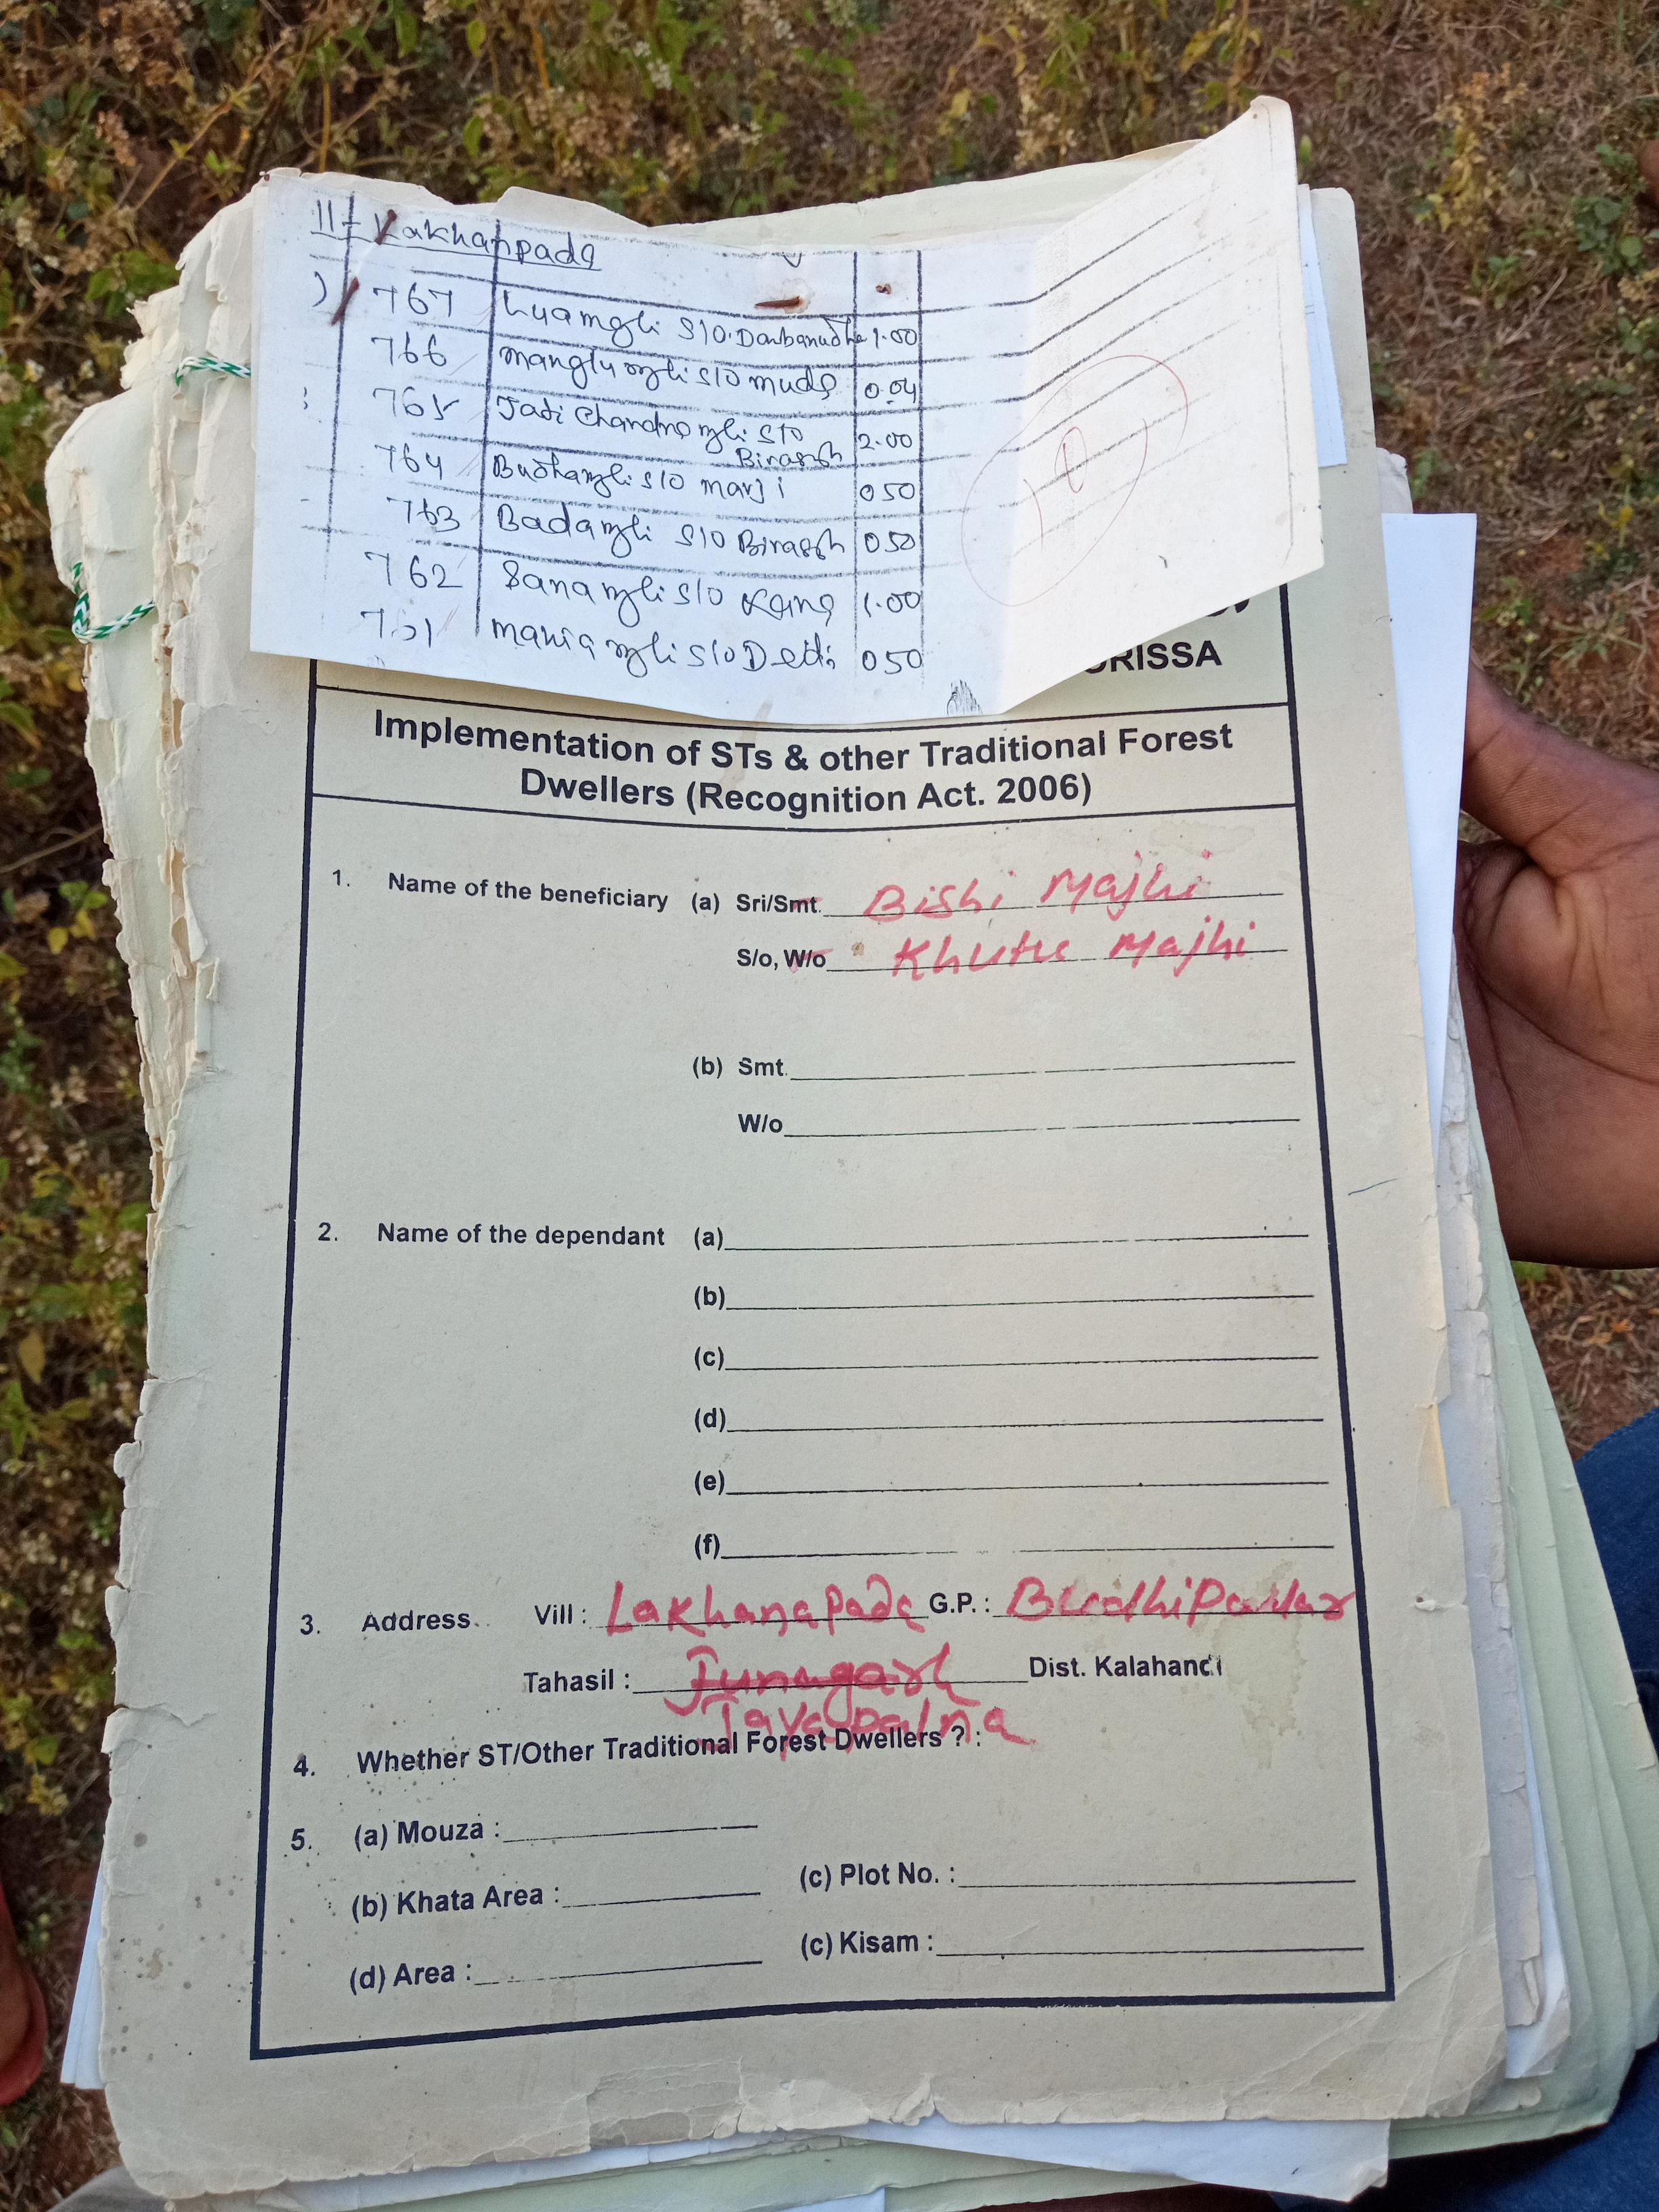 11- Lakhanpada
767 Luamjhi S/O. Danbanudhe 1.00
766 Manglu mjhi S/O muda 0.04
765 Jadi Chandra mjhi S/O Birasingh 2.00
764 Budhamjhi S/O marji 0 50
763 Badamjhi S/O Birasingh 0 50
762 Sana mjhi S/O 1.00
761 mania mjhi S/O 0 50
ORISSA
Implementation of STs & other Traditional Forest
Dwellers (Recognition Act. 2006)
1. Name of the beneficiary (a) Sri/Smt. Bishi Majhi
S/o, W/o Khutu Majhi
(b) Smt.
W/o
2. Name of the dependant (a)
(b)
(c)
(d)
(e)
(f)
3. Address. Vill : Lakhanapada G.P. : Budhipadar
Tahasil : Junagarh Dist. Kalahandi
Jayapatna
4. Whether ST/Other Traditional Forest Dwellers ? :
5. (a) Mouza :
(b) Khata Area : (c) Plot No. :
(d) Area : (c) Kisam :